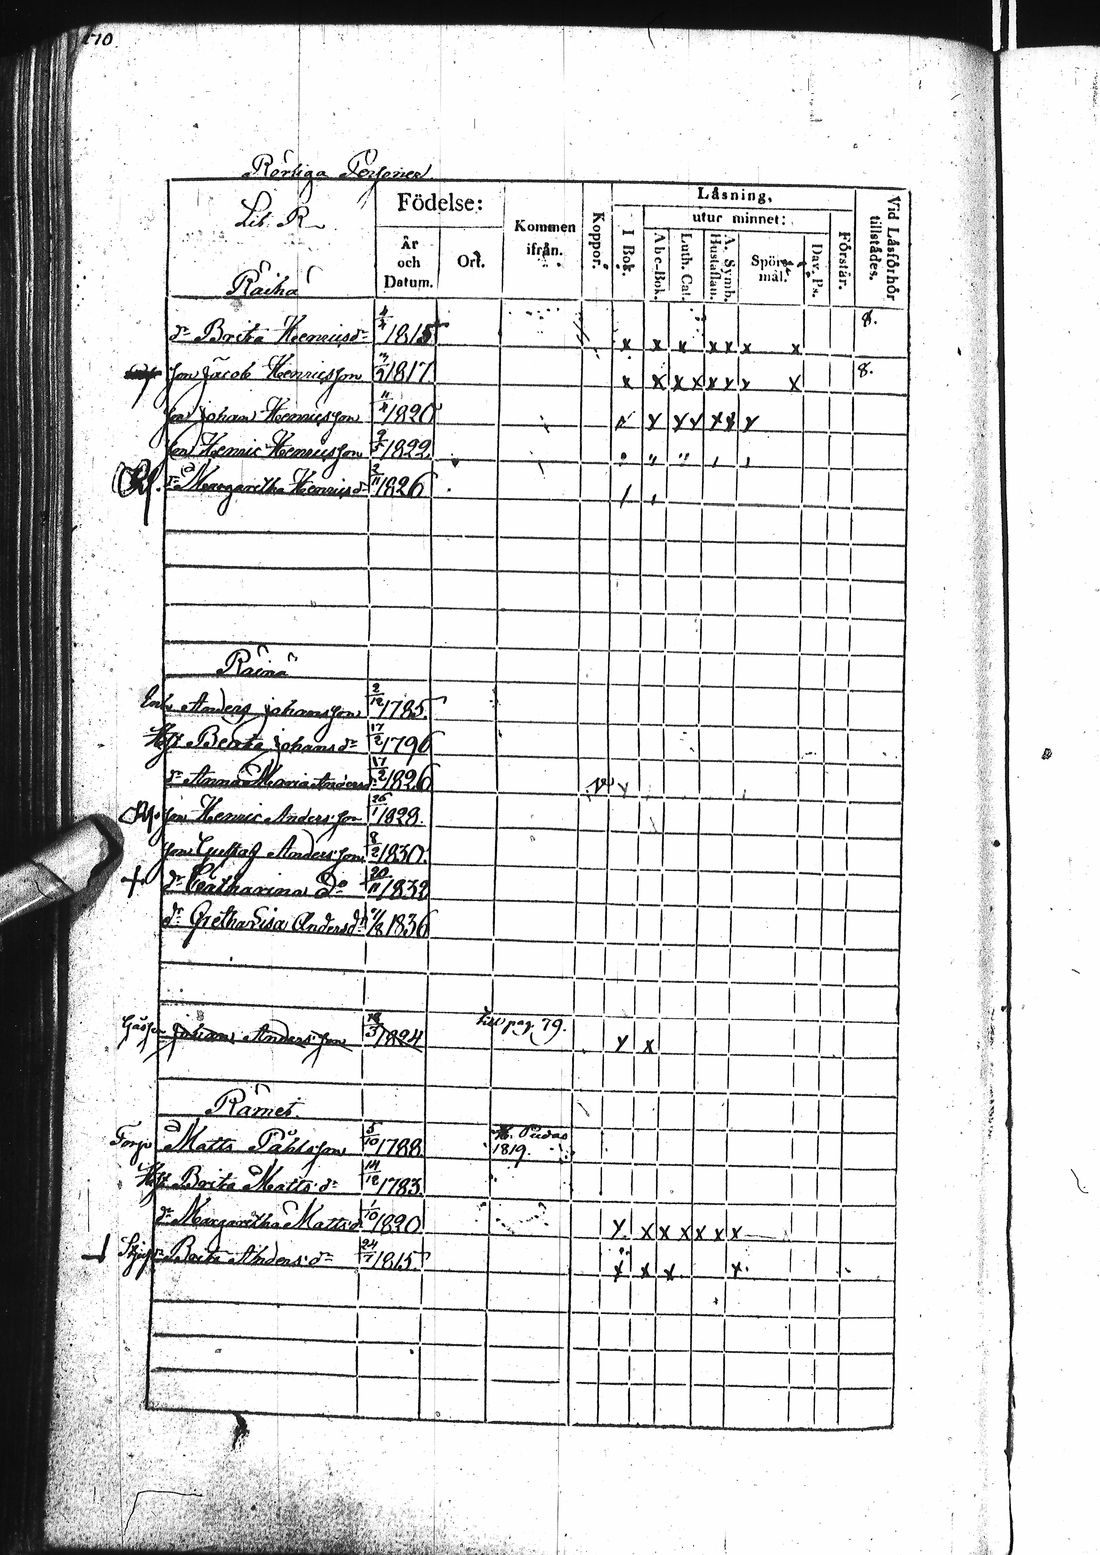 170.
Rörliga Personer
Lit. R
Födelse:
År och Datum.
Ort.
Kommen ifrån.
Koppor.
Läsning,
utur minnet:
I Bok.
Abc-Bok.
Luth. Cat.
A. Symb. Hustaflan.
Spörsmål.
Dav. Ps.
Förstår.
Vid Läsförhör tillstädes.
Raiha
dr Brita Henricsdr 4/4 1815 x x x x x x x 8.
son Jacob Henricsson 1817 x x x x x x x x 8.
son Johan Henricsson 1820
son Henric Henricsson 9/5 1822
dr Margaretha Henricsdr 2/11 1826
Raina
Anders Johansson 2/12 1785.
Hst Beata Johansdr 17/2 1796
dr Anna Maria Andersdr 17/2 1826
son Henric Andersson 26/1 1828.
son Gustaf Andersson 8/2 1830.
+ dr Catharina Do 20/11 1832
dr Greta Lisa Andersdr 1836
Johan Andersson 18/3 1824 pag. 79. x x
Rämet.
Torp Matts Påhlsson 5/10 1788. 1819.
Hst Brita Mattsdr 14/12 1783.
dr Margaretha Mattsdr 1/10 1820 x x x x x x x
Brita Andersdr 24/7 1815 x x x x